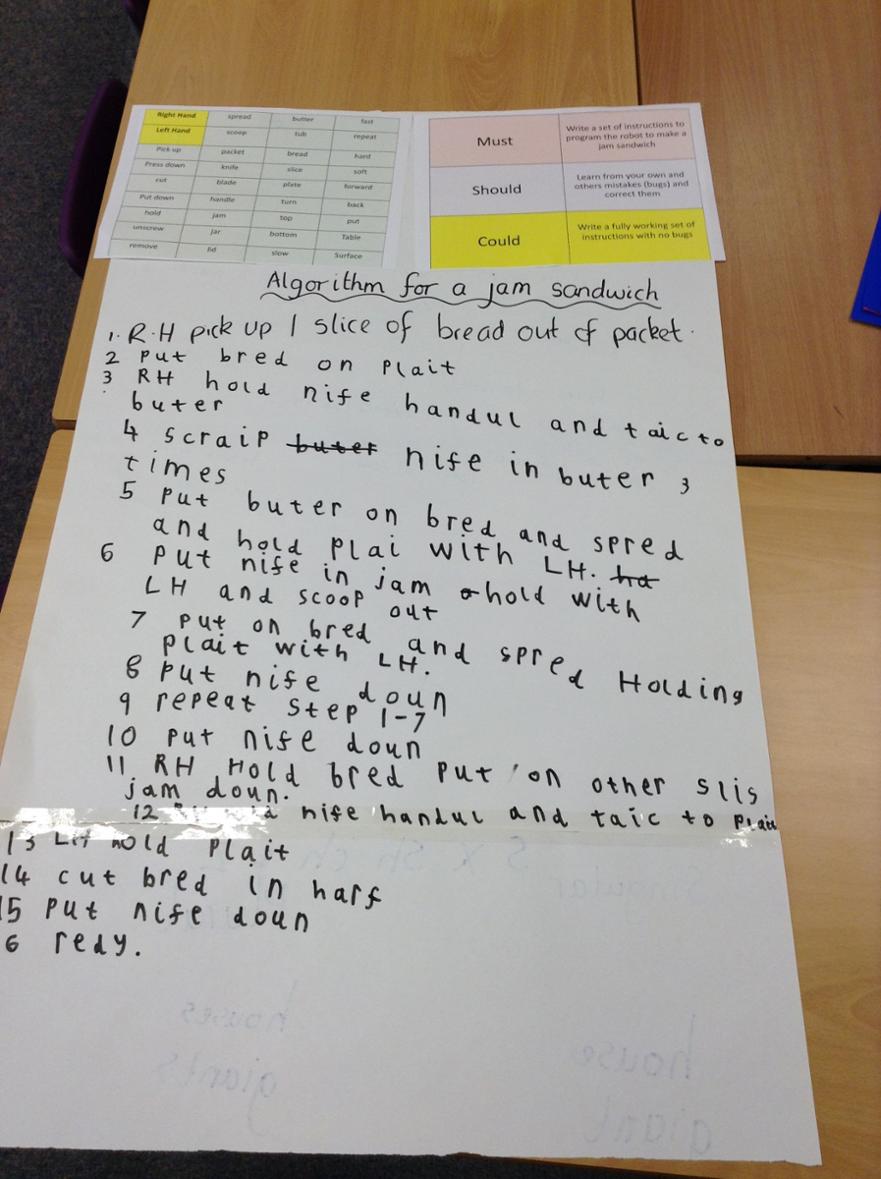 Right Hand spread butter fast
Left Hand scoop tub repeat
Pick up packet bread hard
Press down knife slice soft
cut blade plate forward
Put down handle turn back
hold jam top put
unscrew jar bottom Table
remove lid slow Surface
Must Write a set of instructions to
program the robot to make a
jam sandwich
Should Learn from your own and
others mistakes (bugs) and
correct them
Could Write a fully working set of
instructions with no bugs
Algorithm for a jam sandwich
1. R.H pick up 1 slice of bread out of packet.
2 put bred on plait
3 RH hold nife handul and taic to
buter
4 scraip buter nife in buter 3
times
5 put buter on bred and spred
and hold plai with LH. ha
6 put nife in jam hold with
LH and scoop out
7 put on bred and spred Holding
plait with LH.
8 put nife doun
9 repeat step 1-7
10 put nife doun
11 RH Hold bred put on other slis
jam doun.
12 nife handul and taic to plait
13 LH hold plait
14 cut bred in harf
15 put nife doun
6 redy.
houses
giants
house
giant